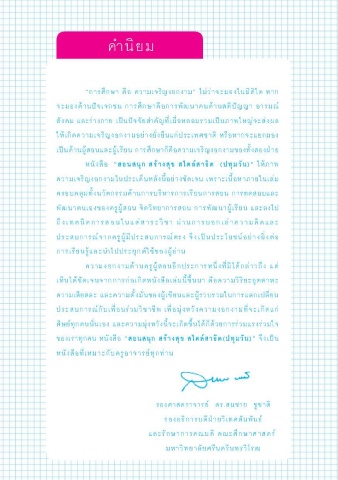 คำนิยม
"การศึกษา คือ ความเจริญงอกงาม" ไม่ว่าจะมองในมิติใด หาก
จะมองด้านปัจเจกชน การศึกษาคือการพัฒนาคนด้านสติปัญญา อารมณ์
สังคม และร่างกาย เป็นปัจจัยสำคัญที่เมื่อหลอมรวมเป็นภาพใหญ่จะส่งผล
ให้เกิดความเจริญงอกงามอย่างยั่งยืนแก่ประเทศชาติ หรือหากจะแยกมอง
เป็นด้านผู้สอนและผู้เรียน การศึกษาก็คือความเจริญงอกงามของทั้งสองฝ่าย
หนังสือ "สอนสนุก สร้างสุข สไตล์สาธิต (ปทุมวัน)" ให้ภาพ
ความเจริญงอกงามในประเด็นหลังนี้อย่างชัดเจน เพราะเนื้อหาภายในเล่ม
ครอบคลุมทั้งนวัตกรรมด้านการบริหารการเรียนการสอน การทดสอนและ
พัฒนาตนเองของครูผู้สอน จิตวิทยาการสอน การพัฒนาผู้เรียน และลงไป
ถึงเทคนิคการสอนในแต่สาระวิชา ผ่านการบอกเล่าความคิดและ
ประสบการณ์จากครูผู้มีประสบการณ์ตรง จึงเป็นประโยชน์อย่างยิ่งต่อ
การเรียนรู้และนำไปประยุกต์ใช้ของผู้อ่าน
ความงอกงามด้านครูผู้สอนอีกประการหนึ่งที่มิได้กล่าวถึง แต่
เห็นได้ชัดเจนจากการก่อเกิดหนังสือเล่มนี้ขึ้นมา คือความวิริยะอุตสาหะ
ความเสียสละ และความตั้งมั่นของผู้เขียนและผู้รวบรวมในการแลกเปลี่ยน
ประสบการณ์กับเพื่อนร่วมวิชาชีพ เพื่อมุ่งหวังความงอกงามที่จะเกิดแก่
ศิษย์ทุกคนนั่นเอง และความมุ่งหวังนี้จะเกิดขึ้นได้ก็ด้วยการร่วมแรงร่วมใจ
ของเราทุกคน หนังสือ "สอนสนุก สร้างสุข สไตล์สาธิต(ปทุมวัน)" จึงเป็น
หนังสือที่เหมาะกับครูอาจารย์ทุกท่าน
รองศาสตราจารย์ ดร.สมชาย ชูชาติ
รองอธิการบดีฝ่ายวิเทศสัมพันธ์
และรักษาการคณบดี คณะศึกษาศาสตร์
มหาวิทยาลัยศรีนครินทรวิโรฒ